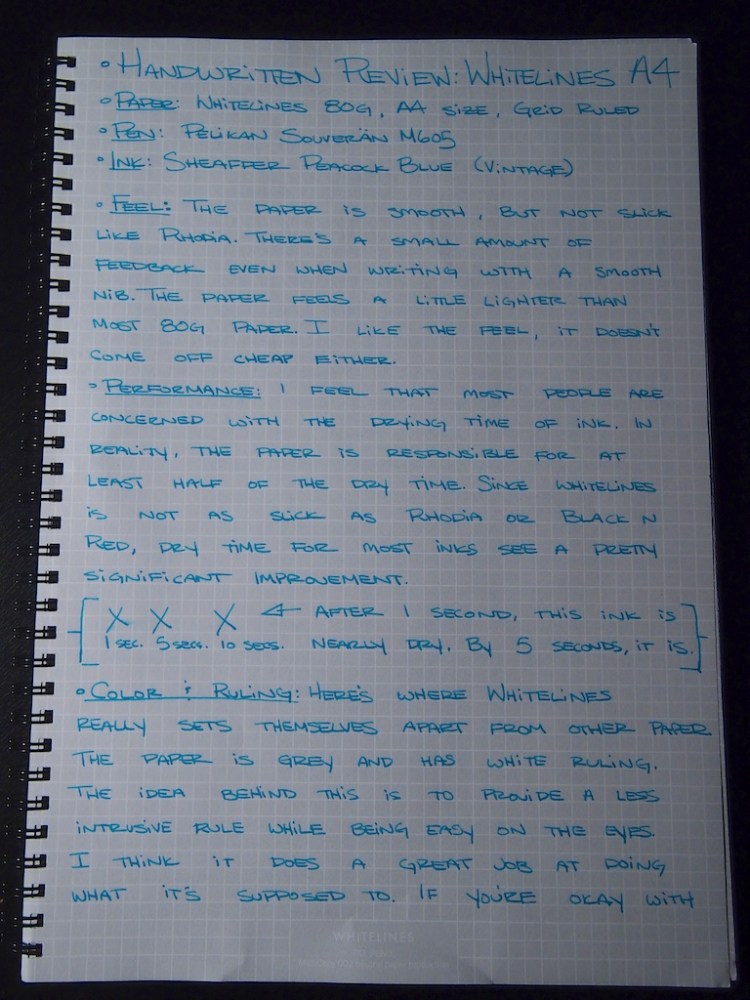 • HANDWRITTEN REVIEW: WHITELINES A4
• PAPER: WHITELINES 80G, A4 SIZE, GRID RULED
• PEN: PELIKAN SOUVERÄN M605
• INK: SHEAFFER PEACOCK BLUE (VINTAGE)
• FEEL: THE PAPER IS SMOOTH, BUT NOT SLICK
LIKE RHODIA. THERE'S A SMALL AMOUNT OF
FEEDBACK EVEN WHEN WRITING WITH A SMOOTH
NIB. THE PAPER FEELS A LITTLE LIGHTER THAN
MOST 80G PAPER. I LIKE THE FEEL, IT DOESN'T
COME OFF CHEAP EITHER.
• PERFORMANCE: I FEEL THAT MOST PEOPLE ARE
CONCERNED WITH THE DRYING TIME OF INK. IN
REALITY, THE PAPER IS RESPONSIBLE FOR AT
LEAST HALF OF THE DRY TIME. SINCE WHITELINES
IS NOT AS SLICK AS RHODIA OR BLACK N
RED, DRY TIME FOR MOST INKS SEE A PRETTY
SIGNIFICANT IMPROVEMENT.
[X X X ← AFTER 1 SECOND, THIS INK IS
1 SEC. 5 SECS. 10 SECS. NEARLY DRY. BY 5 SECONDS, IT IS.]
• COLOR & RULING: HERE'S WHERE WHITELINES
REALLY SETS THEMSELVES APART FROM OTHER PAPER.
THE PAPER IS GREY AND HAS WHITE RULING.
THE IDEA BEHIND THIS IS TO PROVIDE A LESS
INTRUSIVE RULE WHILE BEING EASY ON THE EYES.
I THINK IT DOES A GREAT JOB AT DOING
WHAT IT'S SUPPOSED TO. IF YOU'RE OKAY WITH
WHITELINES